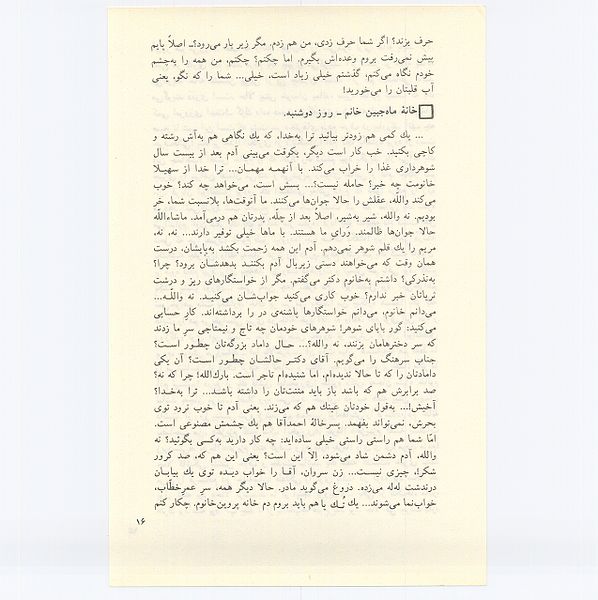 حرف بزند؟ اگر شما حرف زدی، من هم زدم. مگر زیر بار می‌رود؟ـ اصلاً پایم
پیش نمی‌رفت بروم وعده‌اش بگیرم. اما چکنم؟ چکنم، من همه را به‌چشم
خودم نگاه می‌کنم، گذشتم خیلی زیاد است، خیلی... شما را که نگو، یعنی
آب قلبتان را می‌خورید!
خانهٔ ماه‌جبین خانم ـ روز دوشنبه.
... یك کمی هم زودتر بیائید ترا به‌خدا، که یك نگاهی هم به‌آش رشته و
کاچی بکنید. خب کار است دیگر، یکوقت می‌بینی آدم بعد از بیست سال
شوهرداری غذا را خراب می‌کند. با آنهمه مهمان... ترا خدا از سهیلا
خانومت چه خبر؟ حامله نیست؟... بسش است، می‌خواهد چه کند؟ خوب
می‌کند واللّه، عقلش را حالا جوان‌ها می‌کنند. ما آنوقت‌ها، بلانسبت شما، خر
بودیم. نه والله، شیر به‌شیر، اصلاً بعد از چلّه. بدرتان هم درمی‌آمد. ماشاءاللّه
حالا جوان‌ها ظالمند. وَرای ما هستند. با ماها خیلی توفیر دارند... نه، نه،
مریم را یك قلم شوهر نمی‌دهم. آدم این همه زحمت بکشد به‌پایشان، درست
همان وقت که می‌خواهند دستی زیربال آدم بکنند بدهدشان برود؟ چرا؟
به‌نذرکی؟ داشتم به‌خانوم دکتر می‌گفتم. مگر از خواستگارهای ریز و درشت
ثریاتان خبر ندارم؟ خوب کاری می‌کنید جواب‌شان می‌کنید. نه واللّه...
می‌دانم خانوم، می‌دانم خواستگارها پاشنه‌ی در را برداشته‌اند. کار حسابی
می‌کنید: گور بابای شوهر! شوهرهای خودمان چه تاج و نیمتاجی سر ما زدند
که سر دخترهامان بزنند، نه والله؟... حال داماد بزرگه‌تان چطور است؟
جناب سرهنگ را می‌گویم. آقای دکتر حالشان چطور است؟ آن یکی
دامادتان را که تا حالا ندیده‌ام، اما شنیده‌ام تاجر است. بارك‌الله! چرا که نه؟
صد برابرش هم که باشد باز باید منتتان را داشته باشد... ترا به‌خدا؟
آخیش!... به‌قول خودتان عینك هم که می‌زند. یعنی آدم تا خوب نرود توی
بحرش، نمی‌تواند بفهمد. پسرخالهٔ احمدآقا هم یك چشمش مصنوعی است.
امّا شما هم راستی راستی خیلی ساده‌اید: چه کار دارید به‌کسی بگوئید؟ نه
والله، آدم دشمن شاد می‌شود، اِلاّ این است؟ یعنی این هم که، صد کرور
شکر!، چیزی نیست... زن سروان، آقا را خواب دیده توی یك بیابان
درندشت له‌له می‌زده. دروغ می‌گوید مادر. حالا دیگر همه، سرِ عمرِخطّاب،
خواب‌نما می‌شوند... یك تُك پا هم باید بروم دم خانه پروین‌خانوم. چکار کنم
۱۶